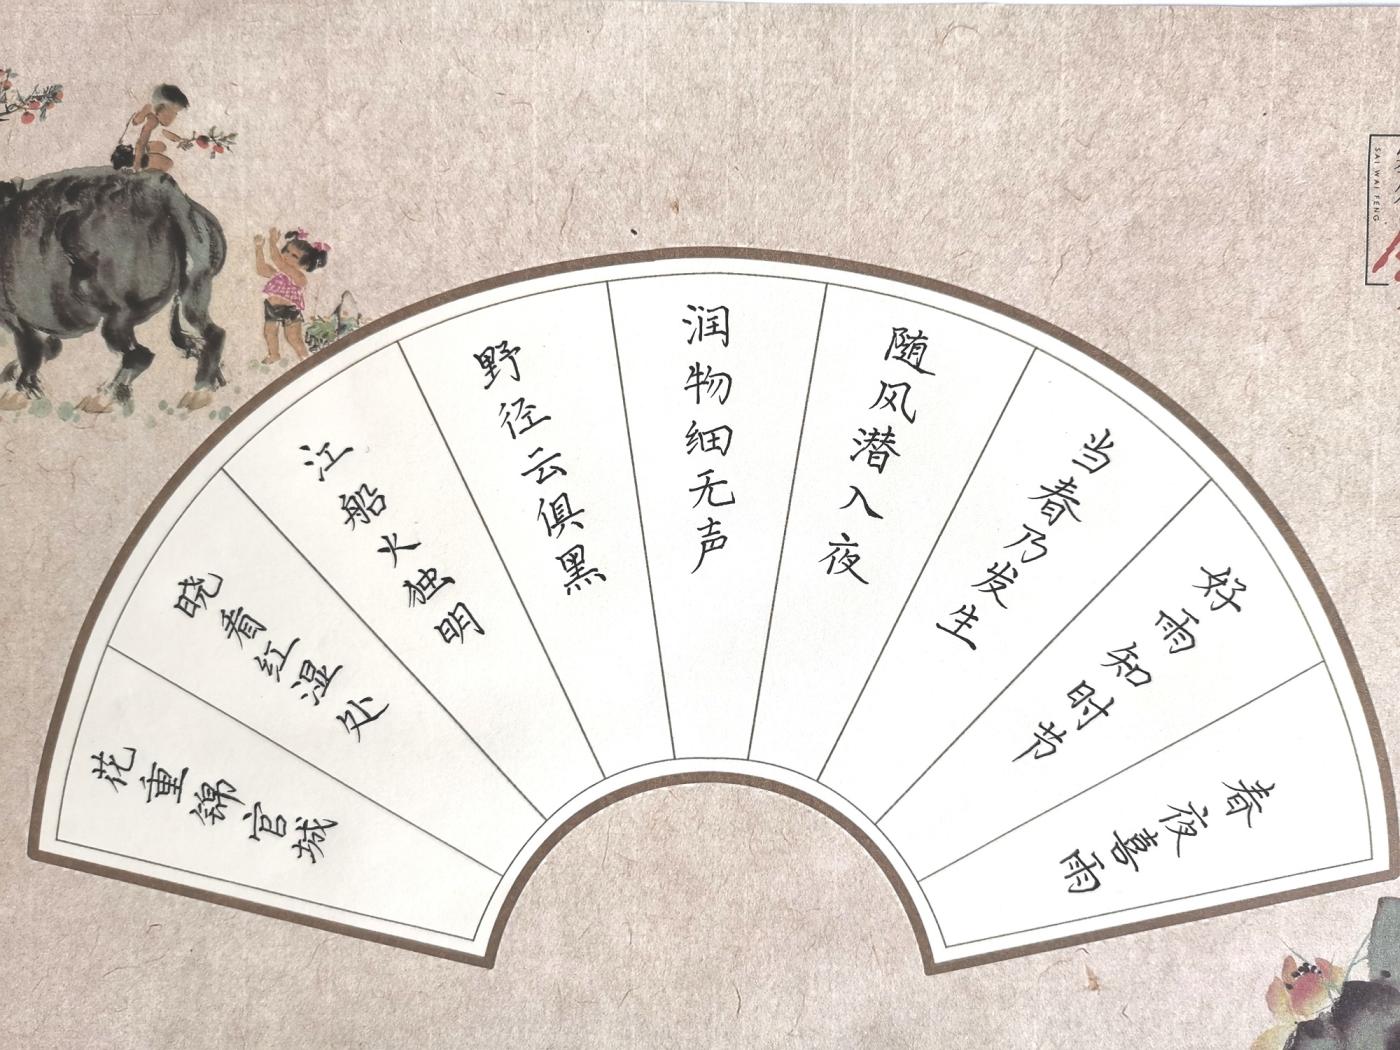 春夜喜雨
好雨知时节
当春乃发生
随风潜入夜
润物细无声
野径云俱黑
江船火独明
晓看红湿处
花重锦官城
SAI WAI FENG